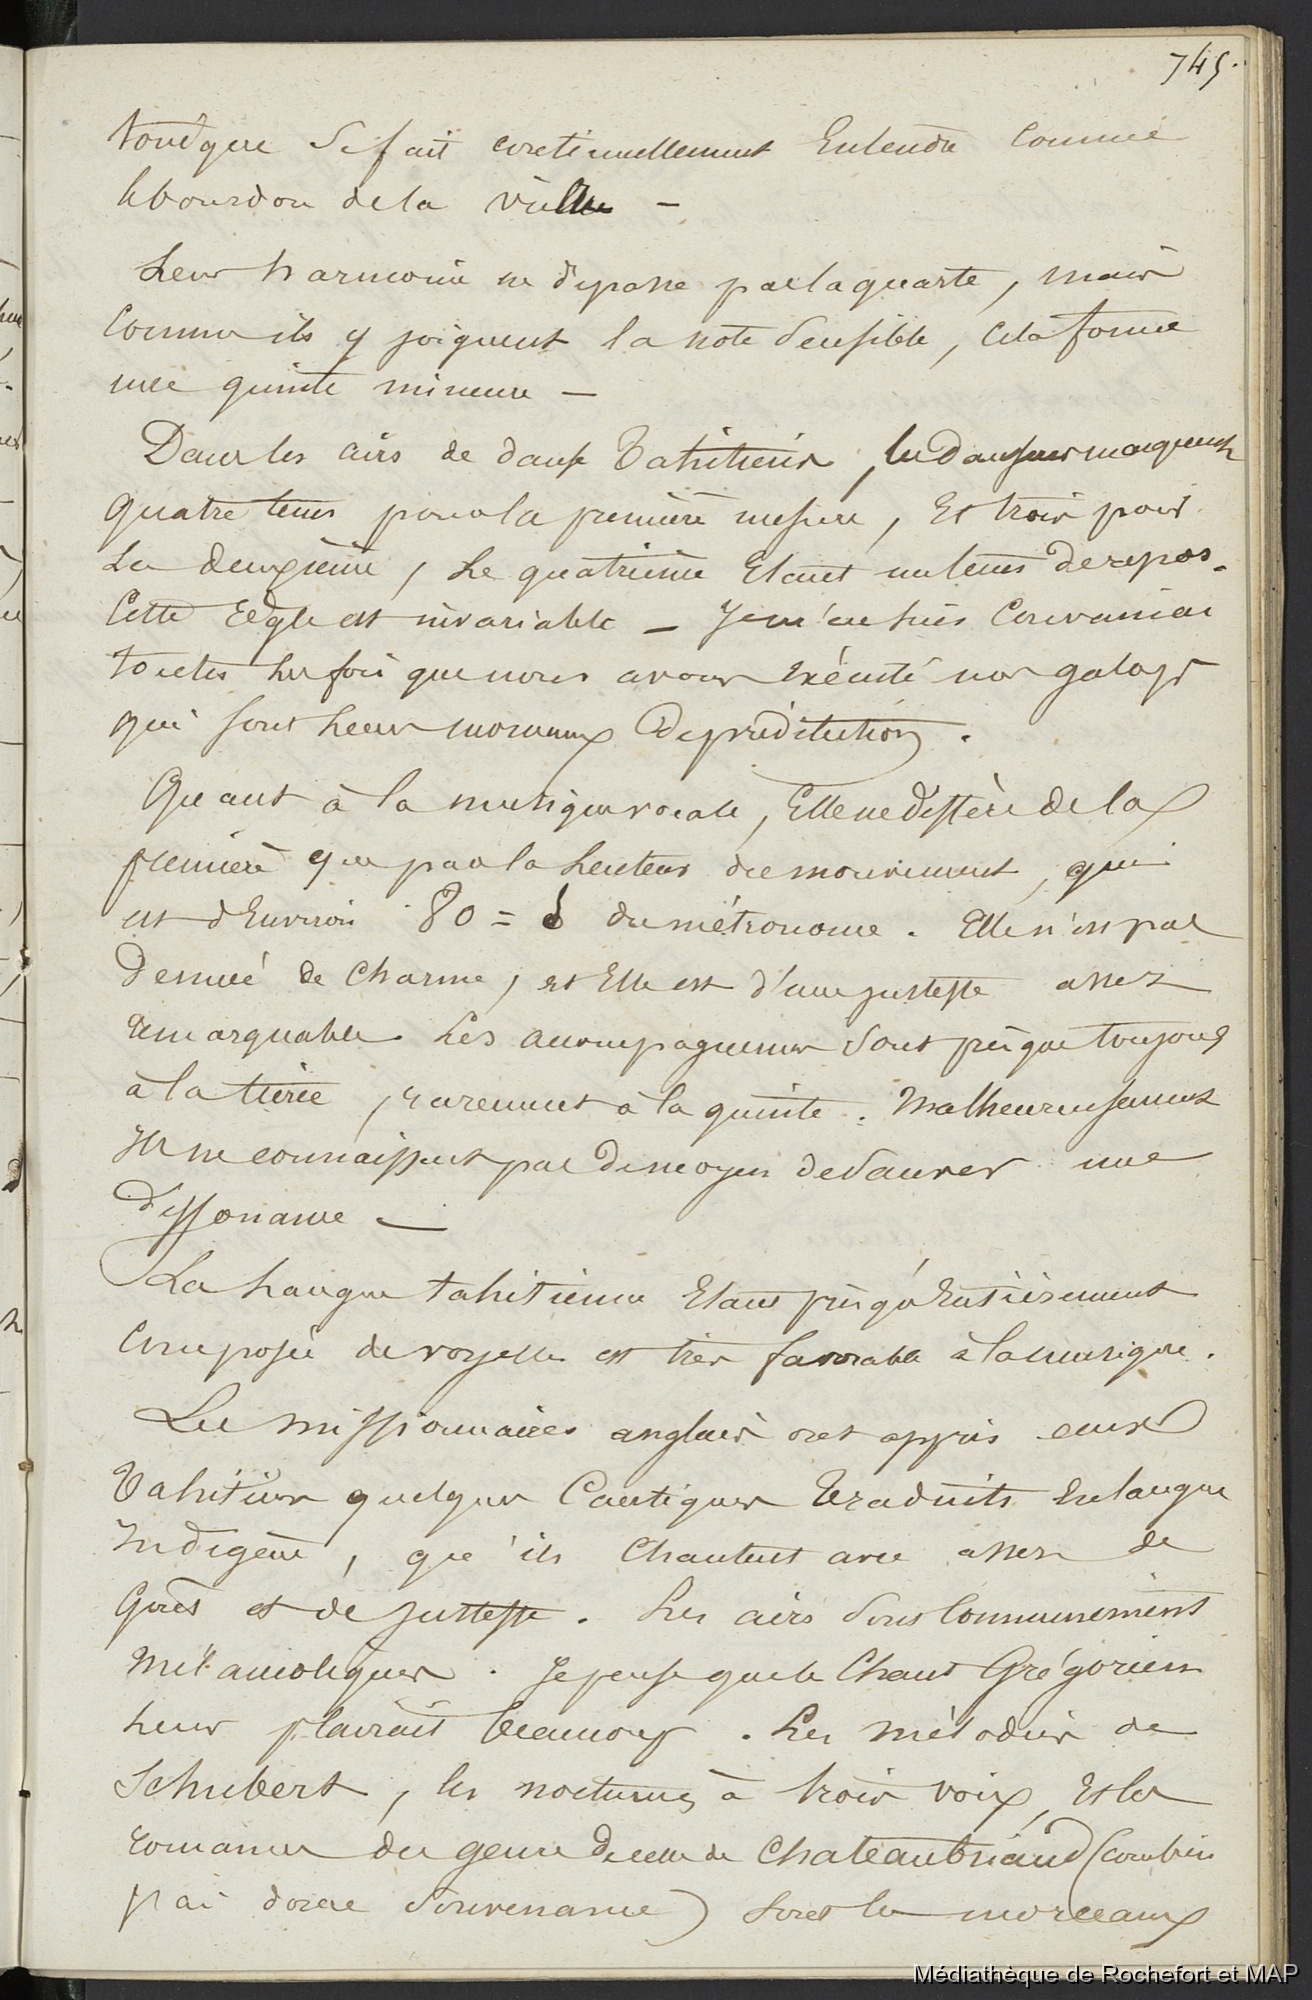 745.
tonique se fait continuellement Entendre Comme
le bourdon de la vielle –
Leur harmonie ne dépasse pas la quarte, mais
Comme ils y joignent la note sensible, cela forme
une quinte mineure –
Dans les airs de danse Tahitiens, les danseurs marquent
quatre tems pour la première mesure, Et trois pour
La deuxième, Le quatrième Etant un tems de repos.
Cette Règle est invariable – Je m'en suis Convaincu
toutes les fois que nous avons Exécuté nos galops
qui sont Leur morceaux De prédilection.
Quant à la musique vocale, Elle ne diffère de la
première que par la Lenteur du mouvement, qui
est d'Environ 80 = ♩ du métronome. Elle n'est pas
Denuée de Charme, et Elle est d'une justesse assez
remarquable. Les accompagnemens sont presque toujours
à la tierce, rarement à la quinte. Malheureusement
Ils ne connaissent pas de moyen de Sauver une
dissonance –
La Langue tahitienne Etant presqu'Entièrement
Composée de voyelles est très favorable à la musique.
Les missionnaires anglais ont appris aux
Tahitiens quelques Cantiques Traduits En langue
Indigène, qu'ils Chantent avec assez de
Goût et de justesse. Les airs sont Communément
Mélancoliques. Je pense que le Chant Grégorien
Leur plairait beaucoup. Les mélodies de
Schubert, les nocturnes à trois voix, Et les
romances du genre de celle de Chateaubriand (Combien
j'ai douce Souvenance) sont les morceaux
Médiathèque de Rochefort et MAP